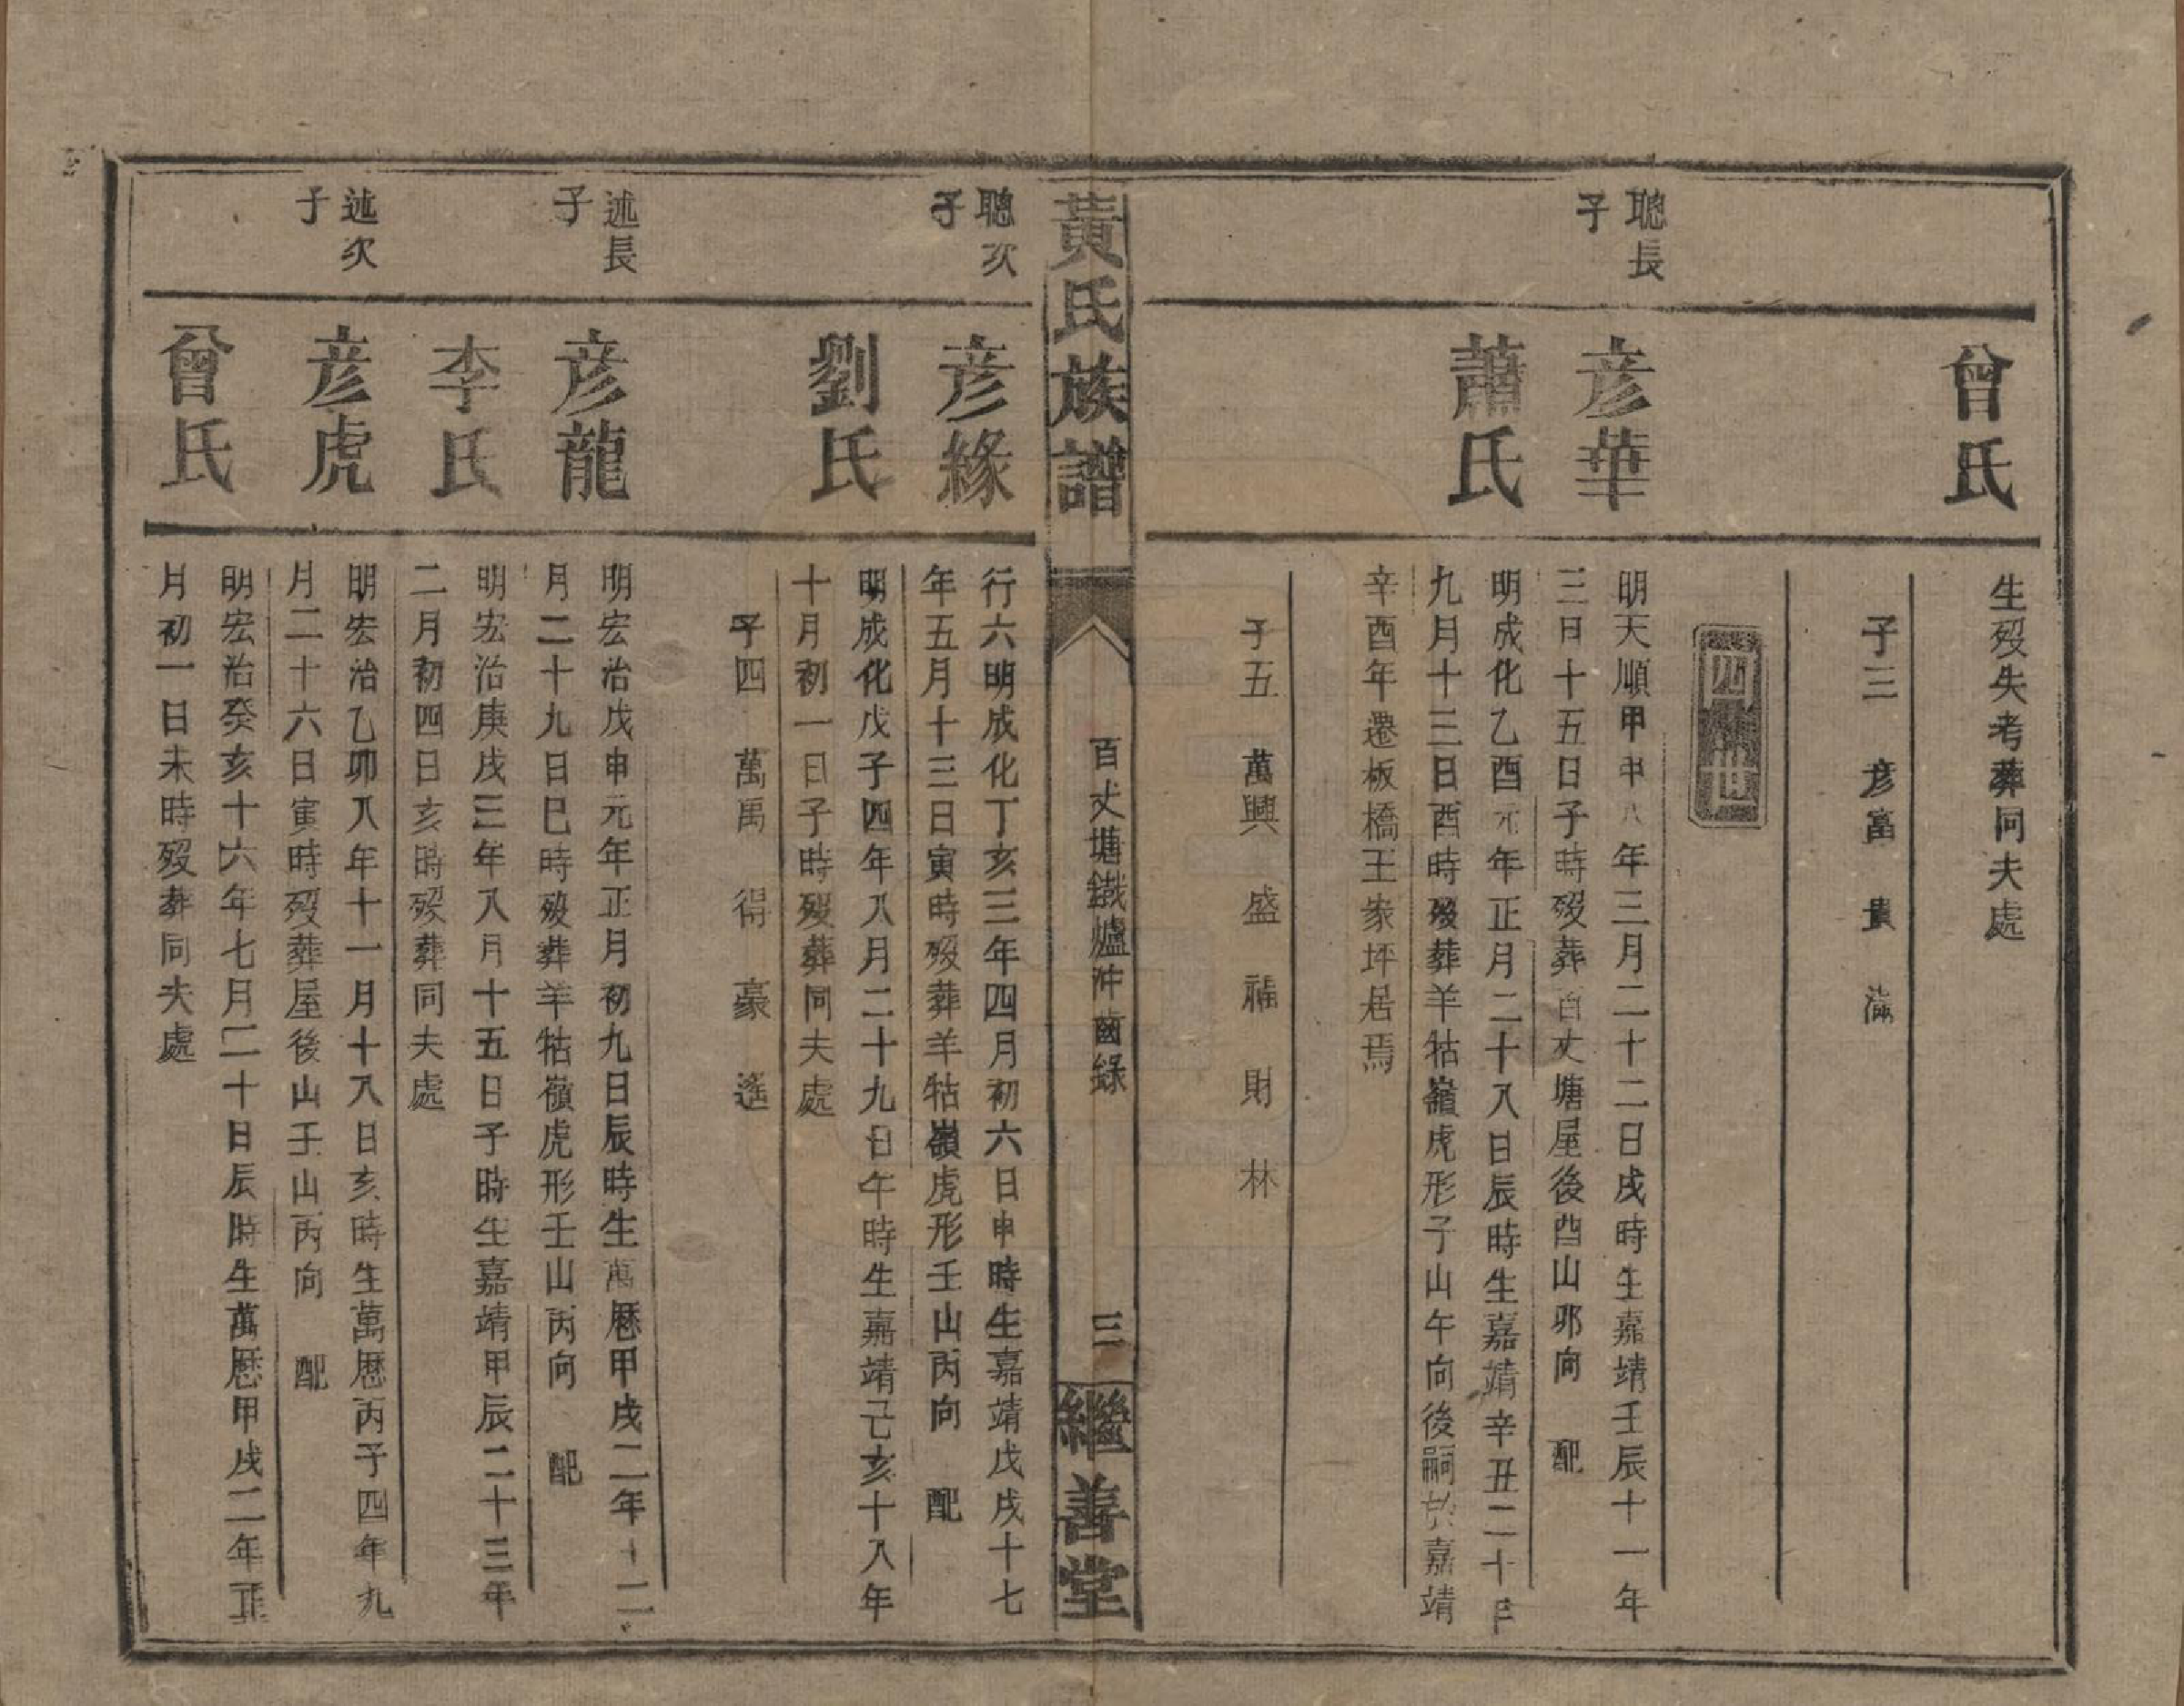 曾氏
生歿失考葬同夫處
子三　彥富　貴　滿
四世
聰長
子
彥華
明天順甲申八年三月二十二日戌時生嘉靖壬辰十一年
三日十五日子時歿葬百丈塘屋後酉山卯向　配
蕭氏
明成化乙酉元年正月二十八日辰時生嘉靖辛丑二十年
九月十三日酉時歿葬羊牯嶺虎形子山午向後嗣於嘉靖
辛酉年遷板橋王家坪居焉
子五　萬興　盛　福　財　林
黃氏族譜
百丈塘鐵爐沖齒錄
三
繼善堂
聰次
子
彥緣
行六明成化丁亥三年四月初六日申時生嘉靖戊戌十七
年五月十三日寅時歿葬羊牯嶺虎形壬山丙向　配
劉氏
明成化戊子四年八月二十九日午時生嘉靖己亥十八年
十月初一日子時歿葬同夫處
子四　萬禹　得　豪　遙
述長
子
彥龍
明宏治戊申元年正月初九日辰時生萬曆甲戌二年十二
月二十九日巳時歿葬羊牯嶺虎形壬山丙向　配
李氏
明宏治庚戌三年八月十五日子時生嘉靖甲辰二十三年
二月初四日亥時歿葬同夫處
述次
子
彥虎
明宏治乙卯八年十一月十八日亥時生萬曆丙子四年九
月二十六日寅時歿葬屋後山壬山丙向　配
曾氏
明宏治癸亥十六年七月二十日辰時生萬曆甲戌二年正
月初一日未時歿葬同夫處